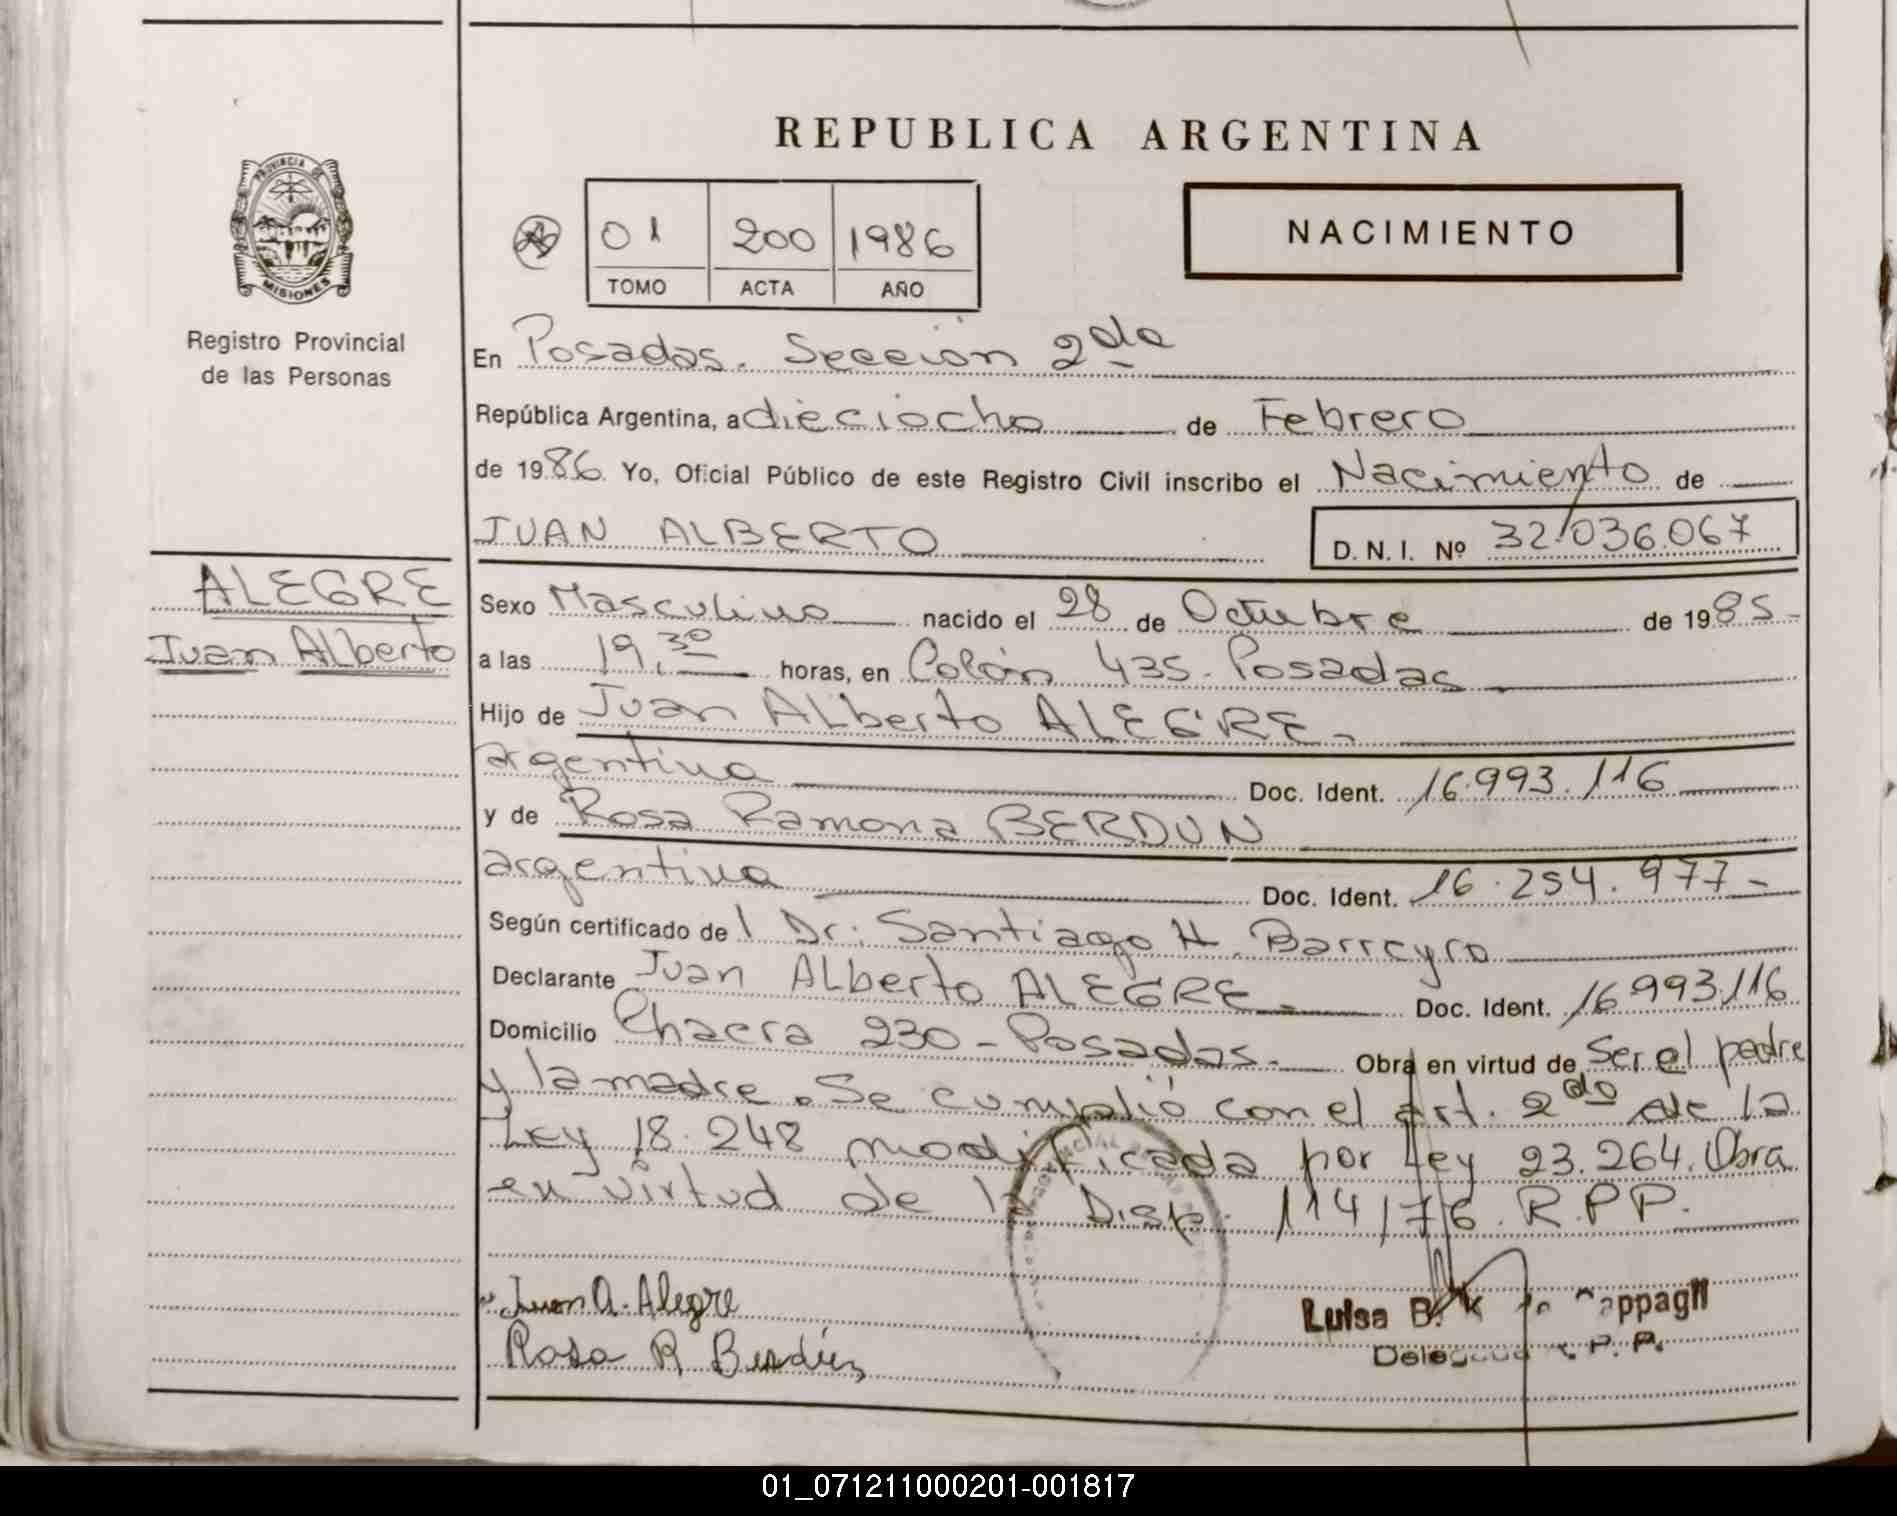 REPUBLICA ARGENTINA
PROVINCIA DE
MISIONES
Registro Provincial
de las Personas
01 200 1986
TOMO ACTA AÑO
NACIMIENTO
En Posadas. Sección 2da
República Argentina, a dieciocho de Febrero
de 1986. Yo, Oficial Público de este Registro Civil inscribo el Nacimiento de
JUAN ALBERTO
D.N.I. Nº 32.036.067
ALEGRE
Juan Alberto
Sexo Masculino nacido el 28 de Octubre de 1985-
a las 19.30 horas, en Colón 435. Posadas
Hijo de Juan Alberto ALEGRE
argentina Doc. Ident. 16.993.116
y de Rosa Ramona BERDUN
argentina Doc. Ident. 16.254.977-
Según certificado del Dr. Santiago H. Barreyro
Declarante Juan Alberto ALEGRE Doc. Ident. 16.993.116
Domicilio Chacra 230 - Posadas. Obra en virtud de Ser el padre
y la madre. Se cumplió con el art. 2do de la
Ley 18.248 modificada por Ley 23.264. Obra
en virtud de la Disp. 114/76. R.P.P.
Juan A. Alegre
Rosa R Berdún
Luisa B.
R. P. P.
01_071211000201-001817